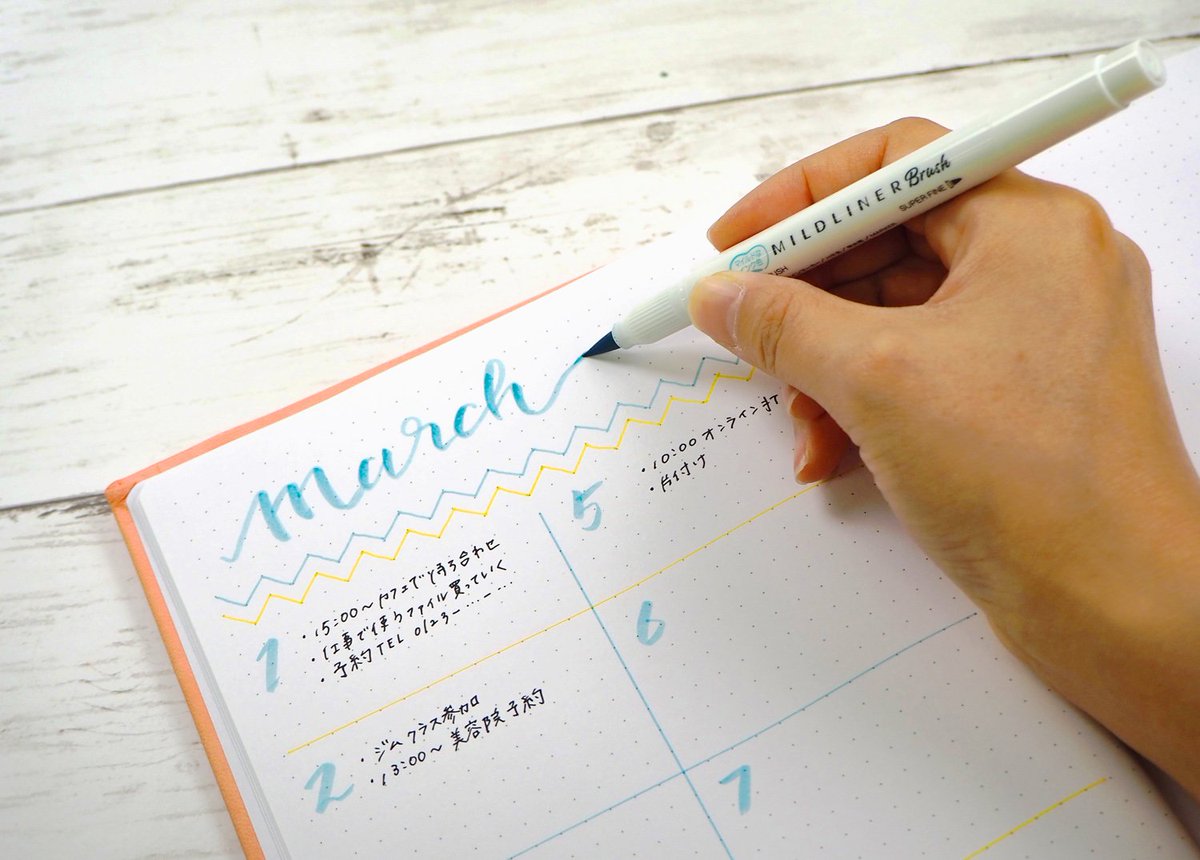 MILDLINER Brush
SUPER FINE
march
1
・15:00〜カフェで待ち合わせ
・仕事で使うファイル買っていく
・予約TEL 0123-…-…
2
・ジムクラス参加
・13:00〜美容院予約
5
・10:00 オンライン
・片付け
6
7